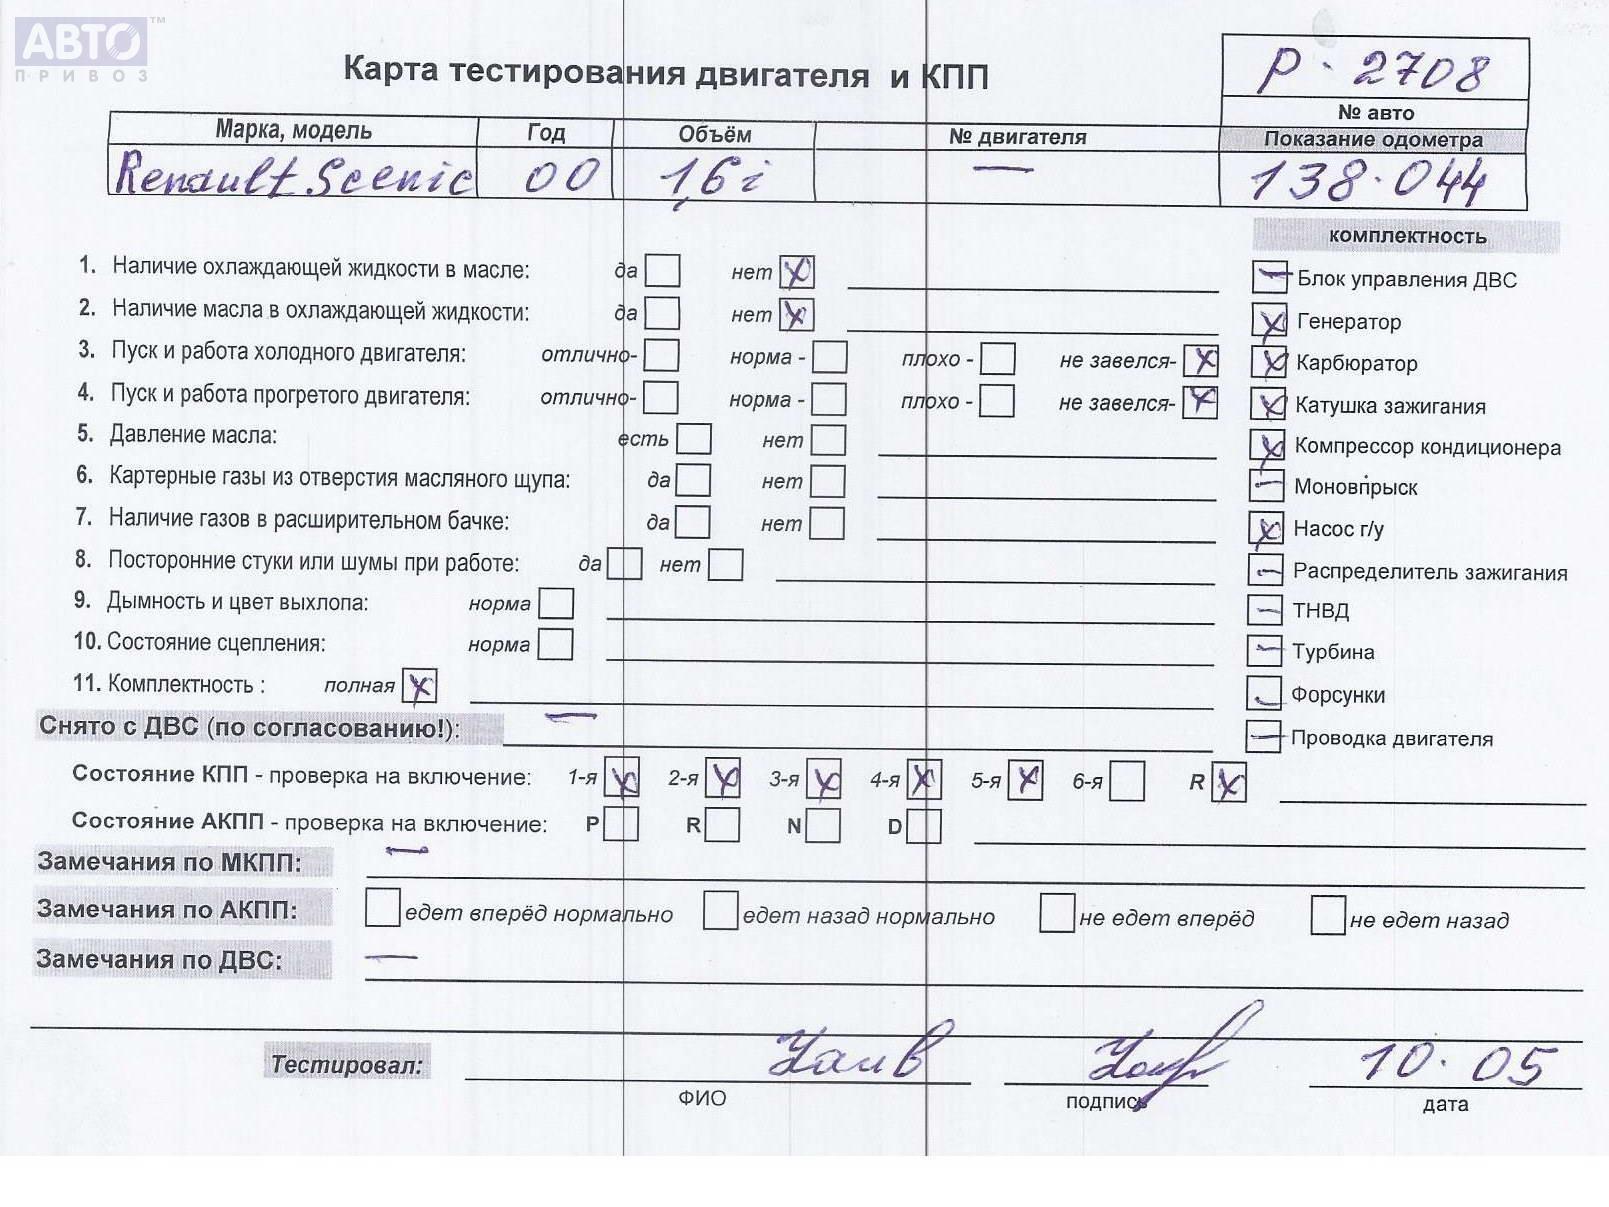 АВТО™
ПРИВОЗ
Карта тестирования двигателя и КПП
Р - 2708
№ авто
Марка, модель Год Объём № двигателя Показание одометра
Renault Scenic 00 1,6i — 138.044
комплектность
1. Наличие охлаждающей жидкости в масле: да нет X
2. Наличие масла в охлаждающей жидкости: да нет X
3. Пуск и работа холодного двигателя: отлично- норма - плохо - не завелся- X
4. Пуск и работа прогретого двигателя: отлично- норма - плохо - не завелся- X
5. Давление масла: есть нет
6. Картерные газы из отверстия масляного щупа: да нет
7. Наличие газов в расширительном бачке: да нет
8. Посторонние стуки или шумы при работе: да нет
9. Дымность и цвет выхлопа: норма
10. Состояние сцепления: норма
11. Комплектность : полная X
— Блок управления ДВС
X Генератор
X Карбюратор
X Катушка зажигания
X Компрессор кондиционера
— Моновпрыск
X Насос г/у
— Распределитель зажигания
— ТНВД
— Турбина
Форсунки
— Проводка двигателя
Снято с ДВС (по согласованию!): —
Состояние КПП - проверка на включение: 1-я X 2-я X 3-я X 4-я X 5-я X 6-я R X
Состояние АКПП - проверка на включение: P R N D
Замечания по МКПП: —
Замечания по АКПП: едет вперёд нормально едет назад нормально не едет вперёд не едет назад
Замечания по ДВС: —
Тестировал: 10.05
ФИО подпись дата